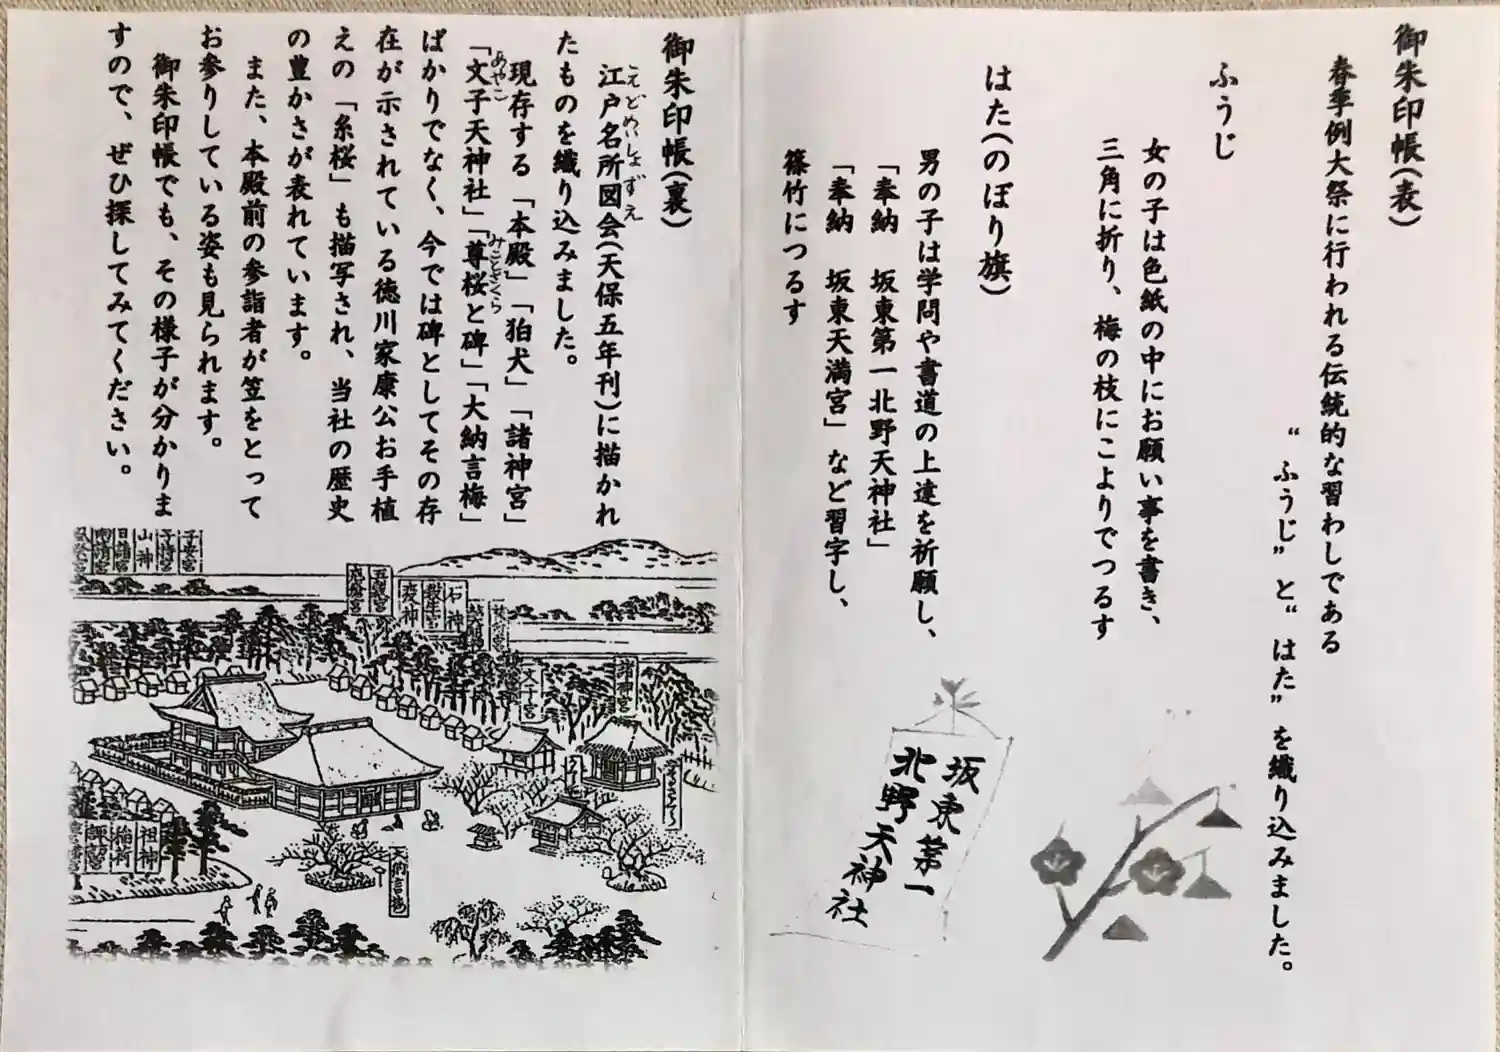 御朱印帳(表)
春季例大祭に行われる伝統的な習わしである
“ふうじ”と“はた”を織り込みました。
ふうじ
女の子は色紙の中にお願い事を書き、
三角に折り、梅の枝にこよりでつるす
はた(のぼり旗)
男の子は学問や書道の上達を祈願し、
「奉納 坂東第一北野天神社」
「奉納 坂東天満宮」など習字し、
篠竹につるす
坂東第一
北野天神社
御朱印帳(裏)
江戸名所図会(天保五年刊)に描かれ
えどめいしょずえ
たものを織り込みました。
現存する「本殿」「狛犬」「諸神宮」
「文子天神社」「尊桜と碑」「大納言梅」
あやこ
みことざくら
ばかりでなく、今では碑としてその存
在が示されている徳川家康公お手植
えの「糸桜」も描写され、当社の歴史
の豊かさが表れています。
また、本殿前の参詣者が笠をとって
お参りしている姿も見られます。
御朱印帳でも、その様子が分かりま
すので、ぜひ探してみてください。
子安宮
子持宮
山神
石神
疫神
諸神宮
文子宮
祖神
稲荷
大納言梅